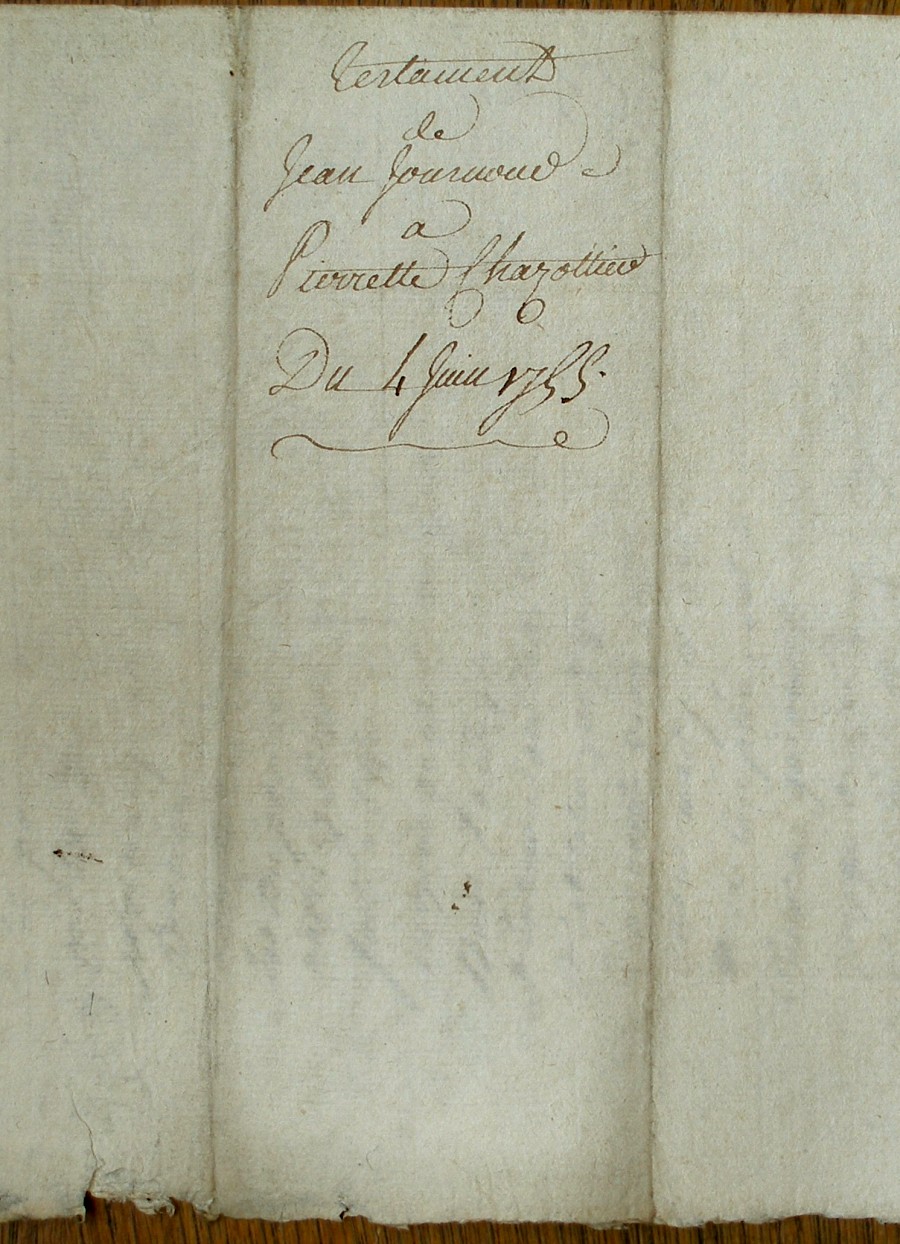 Testament
de
Jean Journoud
a
Pierrette Chazottier
Du 4 Juin 1755.